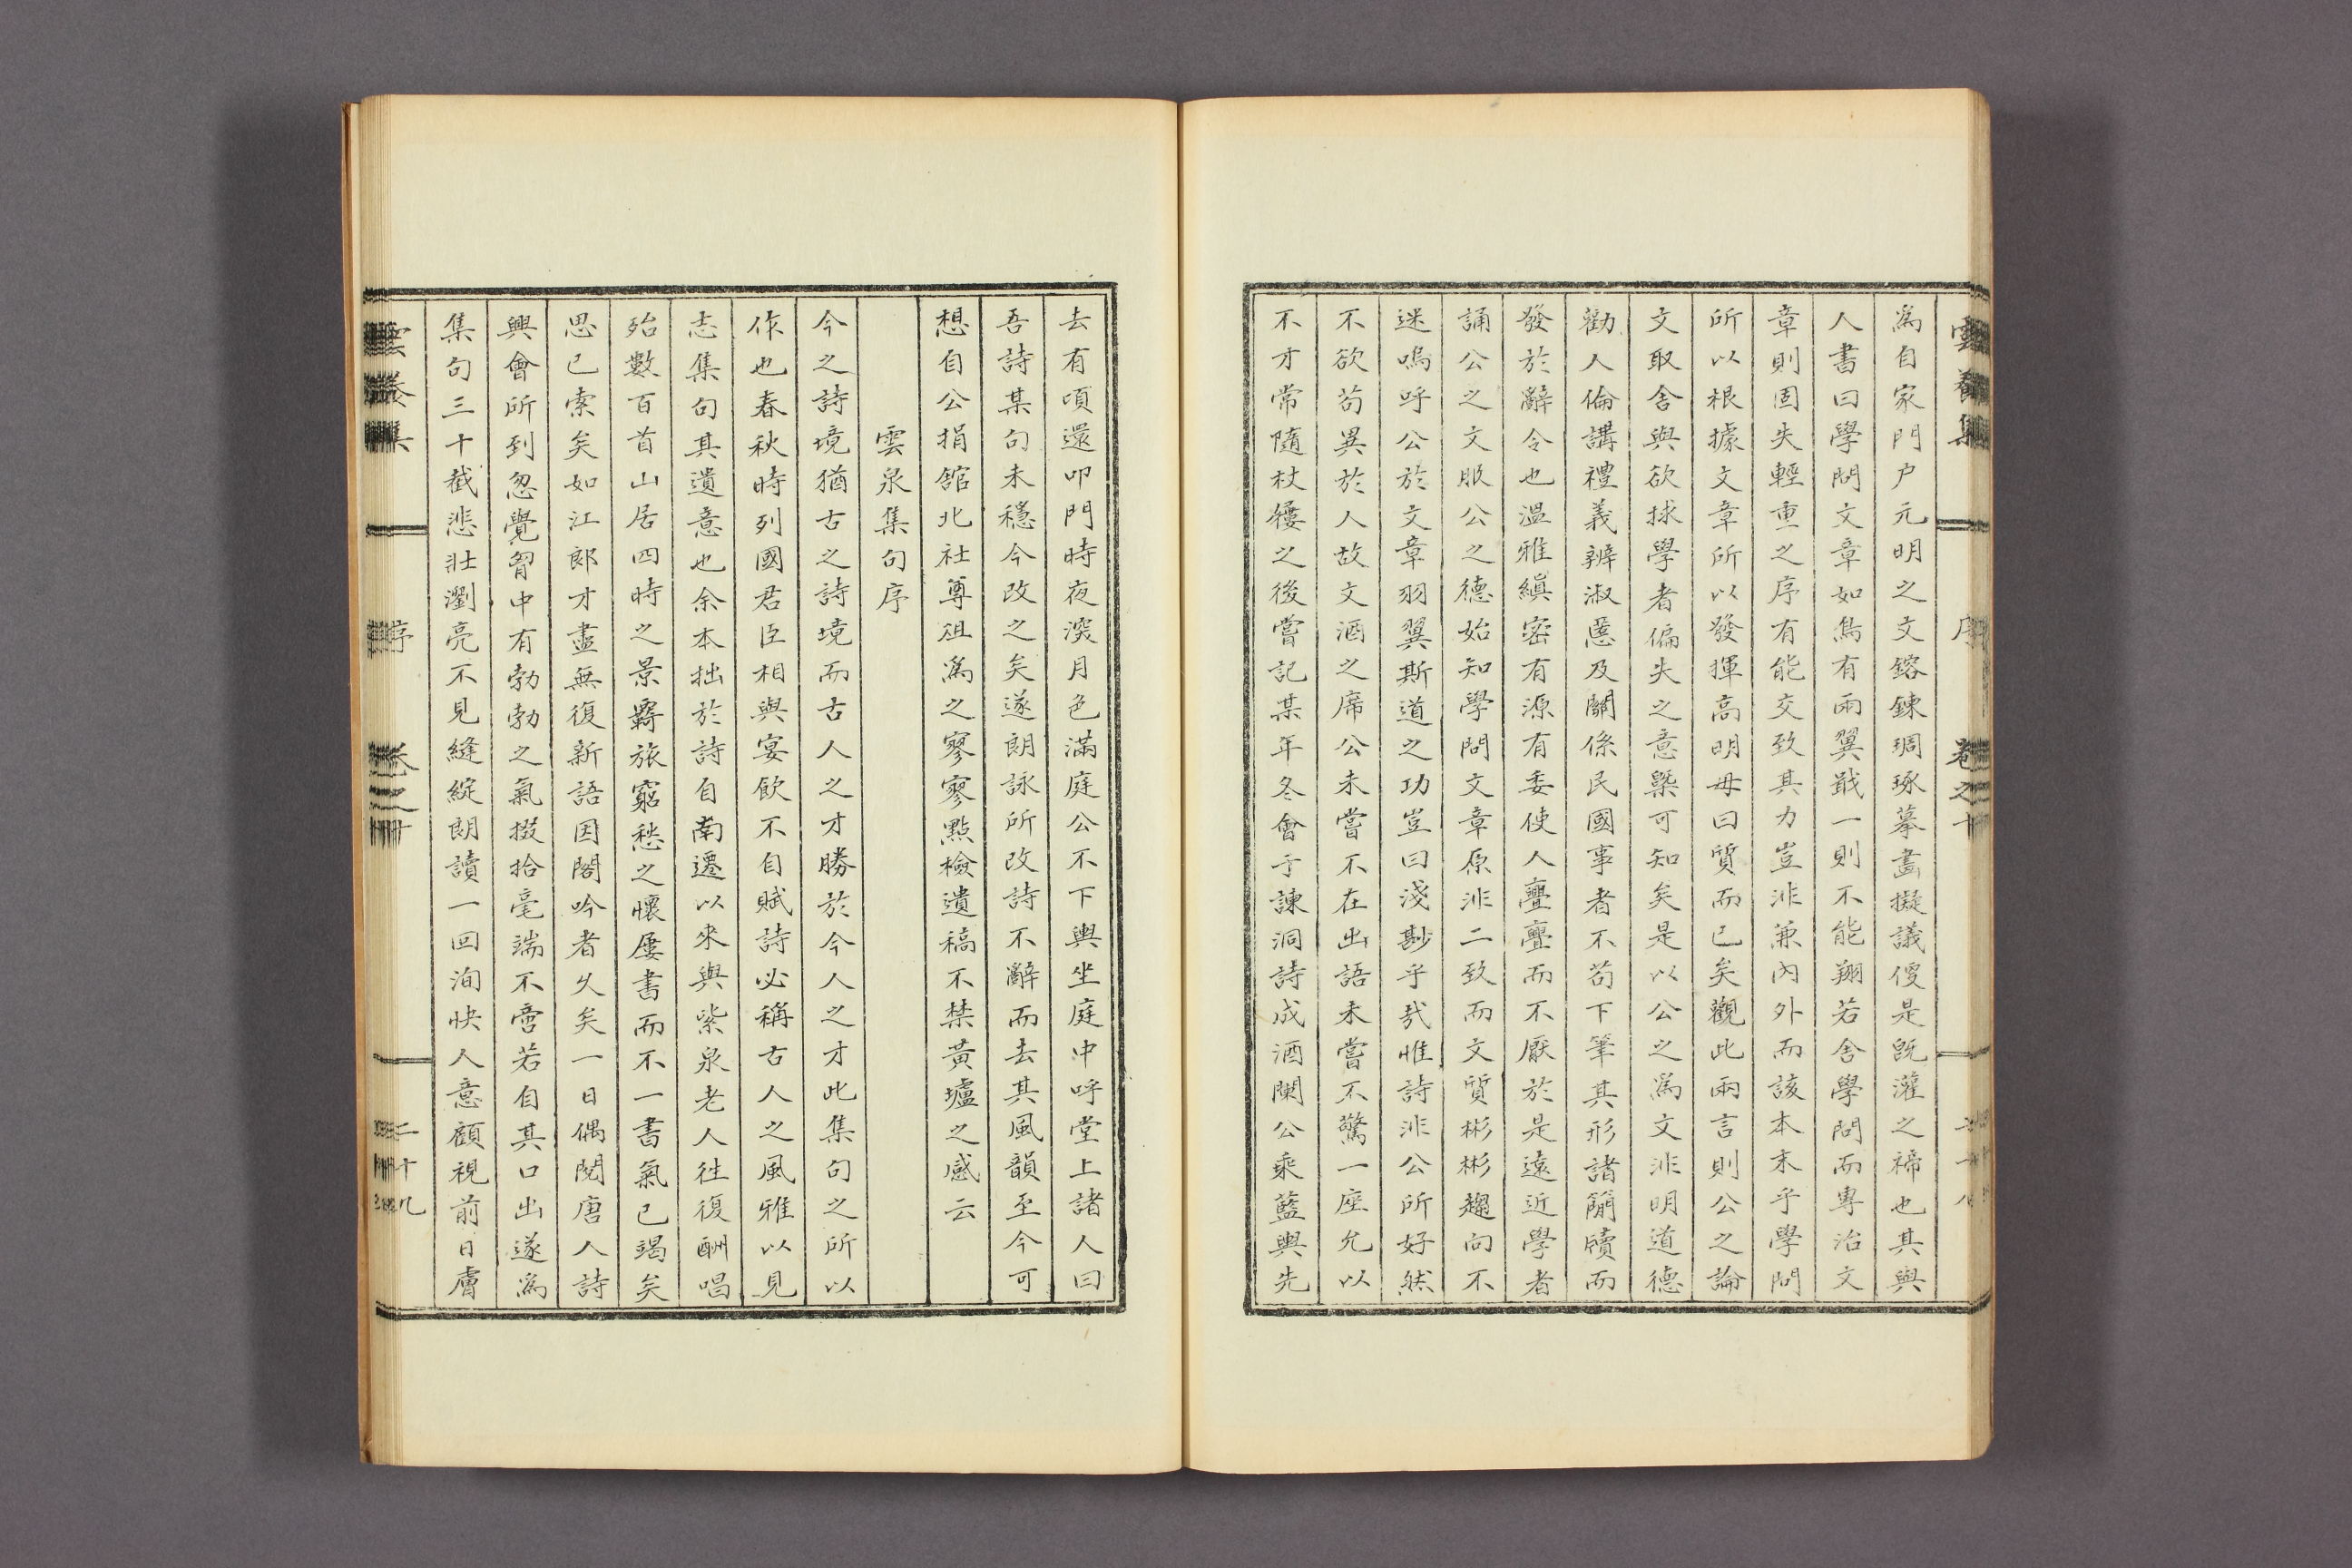 爲自家門户元明之文鎔鍊琱琢摹畵擬議傻是旣灌之禘也其與
人書曰學問文章如鳥有兩翼戢一則不能翔若舍學問而專治文
章則固失輕重之序有能交致其力豈非兼內外而該本末乎學問
所以根據文章所以發揮高明毋曰質而已矣觀此兩言則公之論
文取舍與欲捄學者偏失之意槩可知矣是以公之爲文非明道德
勸人倫講禮義辨淑慝及關係民國事者不苟下筆其形諸簡牘而
發於辭令也溫雅縝密有源有委使人亹亹而不厭於是遠近學者
誦公之文服公之德始知學問文章原非二致而文質彬彬趨向不
迷嗚呼公於文章羽翼斯道之功豈曰淺尠乎㢤惟詩非公所好然
不欲苟異於人故文酒之席公未嘗不在出語未嘗不驚一座允以
不才常隨杖屨之後嘗記某年冬會于諫洞詩成酒闌公乘藍輿先
去有頃還叩門時夜深月色滿庭公不下輿坐庭中呼堂上諸人曰
吾詩某句未穩今改之矣遂朗詠所改詩不辭而去其風韻至今可
想自公捐舘北社尊俎爲之寥寥點檢遺稿不禁黃壚之感云
雲泉集句序
今之詩境猶古之詩境而古人之才勝於今人之才此集句之所以
作也春秋時列國君臣相與宴飮不自賦詩必稱古人之風雅以見
志集句其遺意也余本拙於詩自南遷以來與紫泉老人往復酬唱
殆數百首山居四時之景羇旅窮愁之懷屢書而不一書氣已竭矣
思已索矣如江郎才盡無復新語因閣吟者久矣一日偶閱唐人詩
興會所到忽覺胷中有勃勃之氣掇拾毫端不啻若自其口出遂爲
集句三十截悲壯瀏亮不見縫綻朗讀一回洵快人意顧視前日膚
雲養集 序 卷之十 二十九